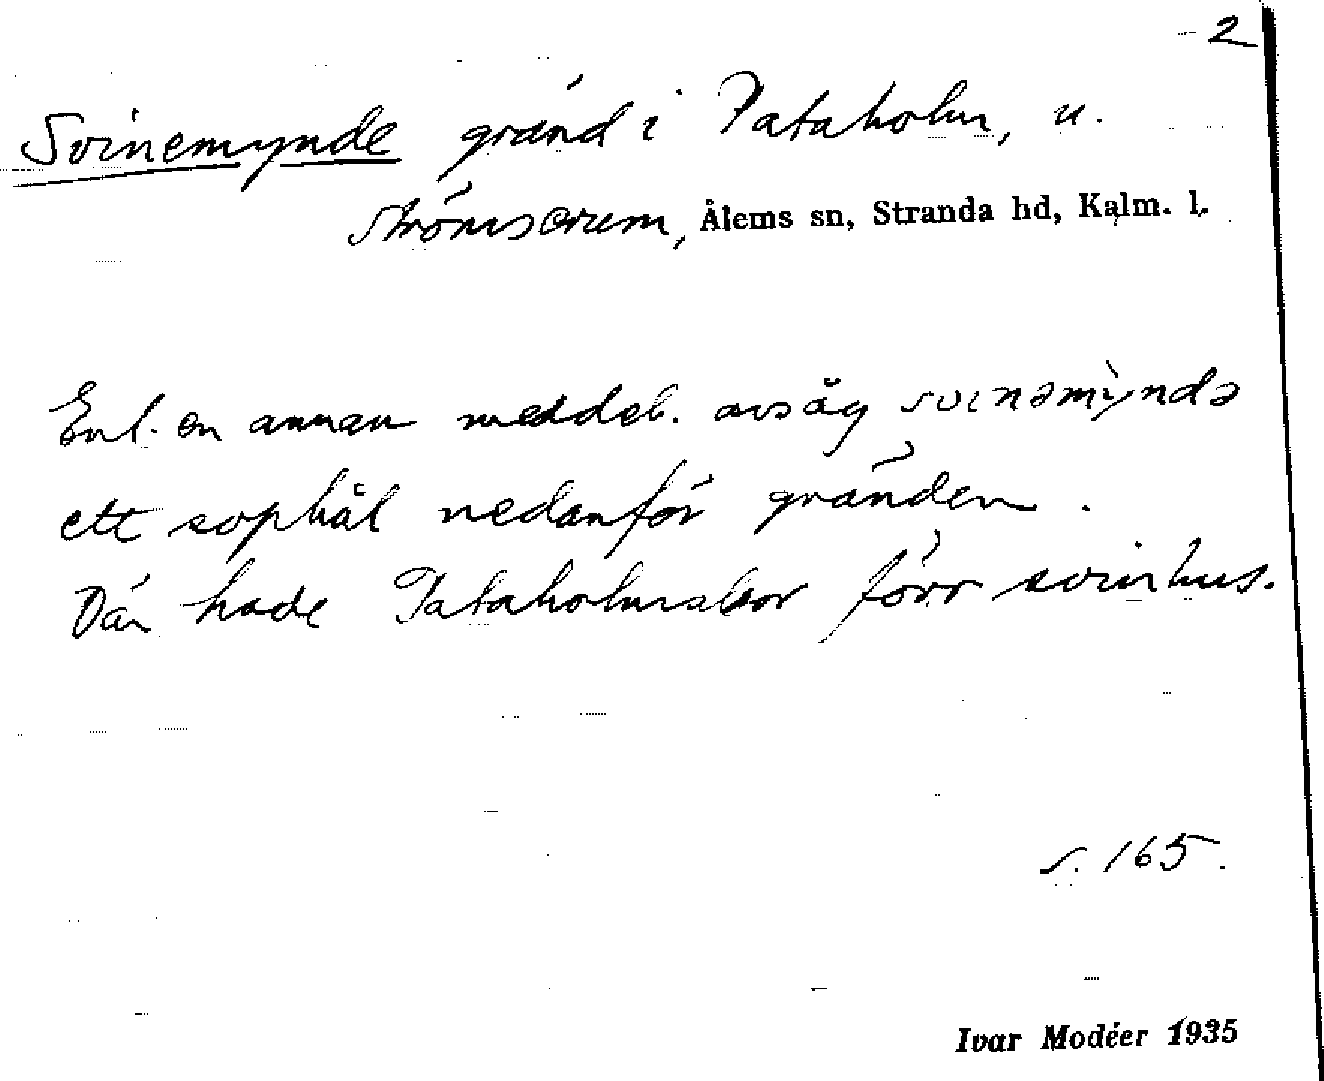 2
Svinemynde gränd i Pataholm, u.
Strömserum, Ålems sn, Stranda hd, Kalm. l.
Enl. en annan meddel. avsåg svinəmỳndə
ett sophål nedanför gränden.
Där hade Pataholmsbor förr svinhus.
s. 165.
Ivar Modéer 1935